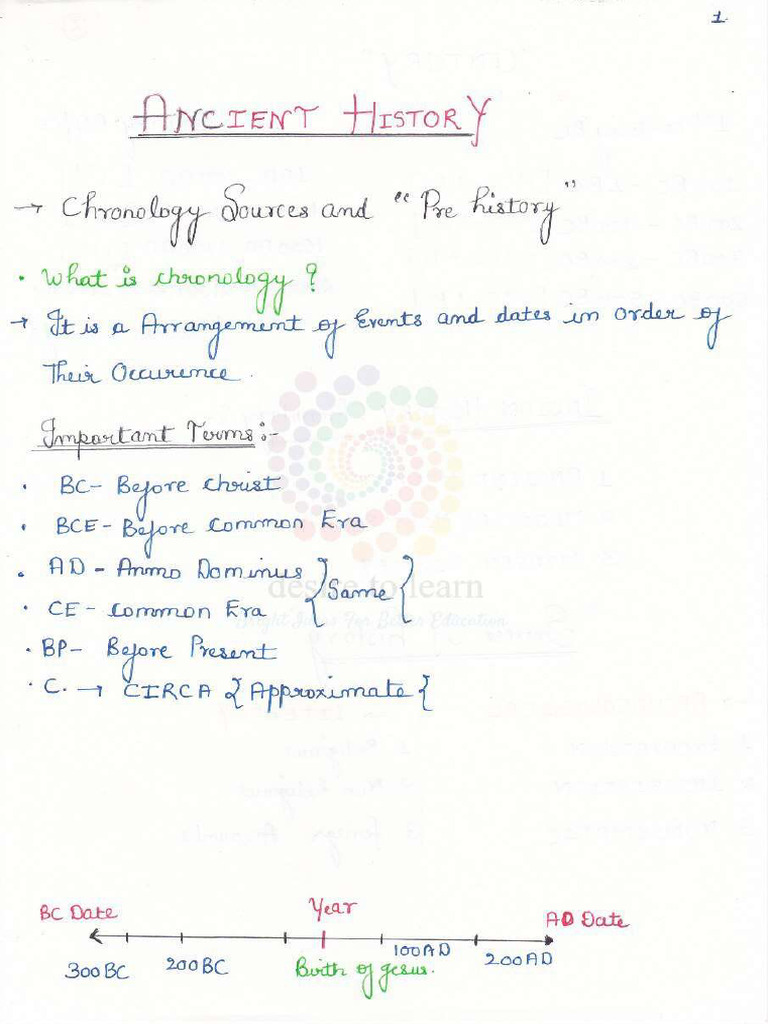 1
ANCIENT HISTORY
→ Chronology Sources and "Pre history"
• What is chronology?
→ It is a Arrangement of Events and dates in order of
Their Occurence.
Important Terms:-
• BC- Before Christ
• BCE- Before Common Era
• AD - Anmo Dominus } Same {
desire to learn
• CE- Common Era
Bright Ideas For Better Education
• BP- Before Present
• C. → CIRCA { Approximate {
BC Date Year AD Date
300 BC 200 BC Birth of Jesus. 100 AD 200 AD